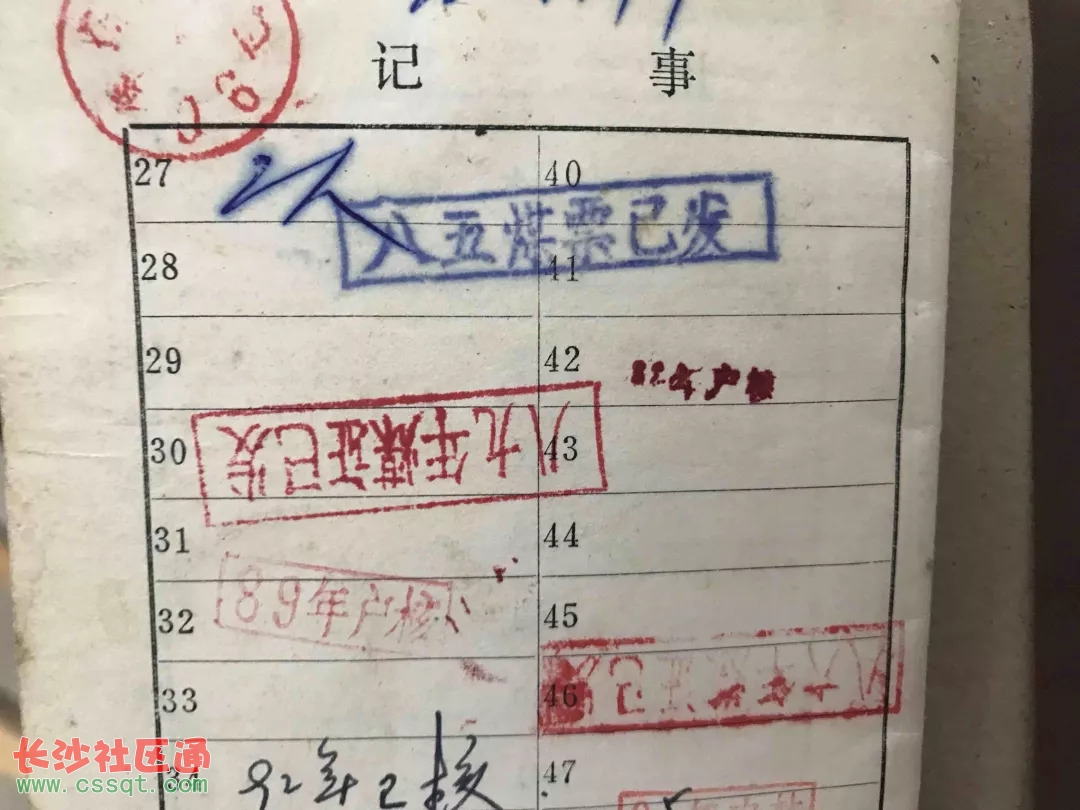 记 事
27
2人
40
八五煤票已发
28
41
29
42
户核
八九年煤证已发
30
43
31
44
89年户核
32
45
33
46
92年已核
34
47
长沙社区通
www.cssqt.com